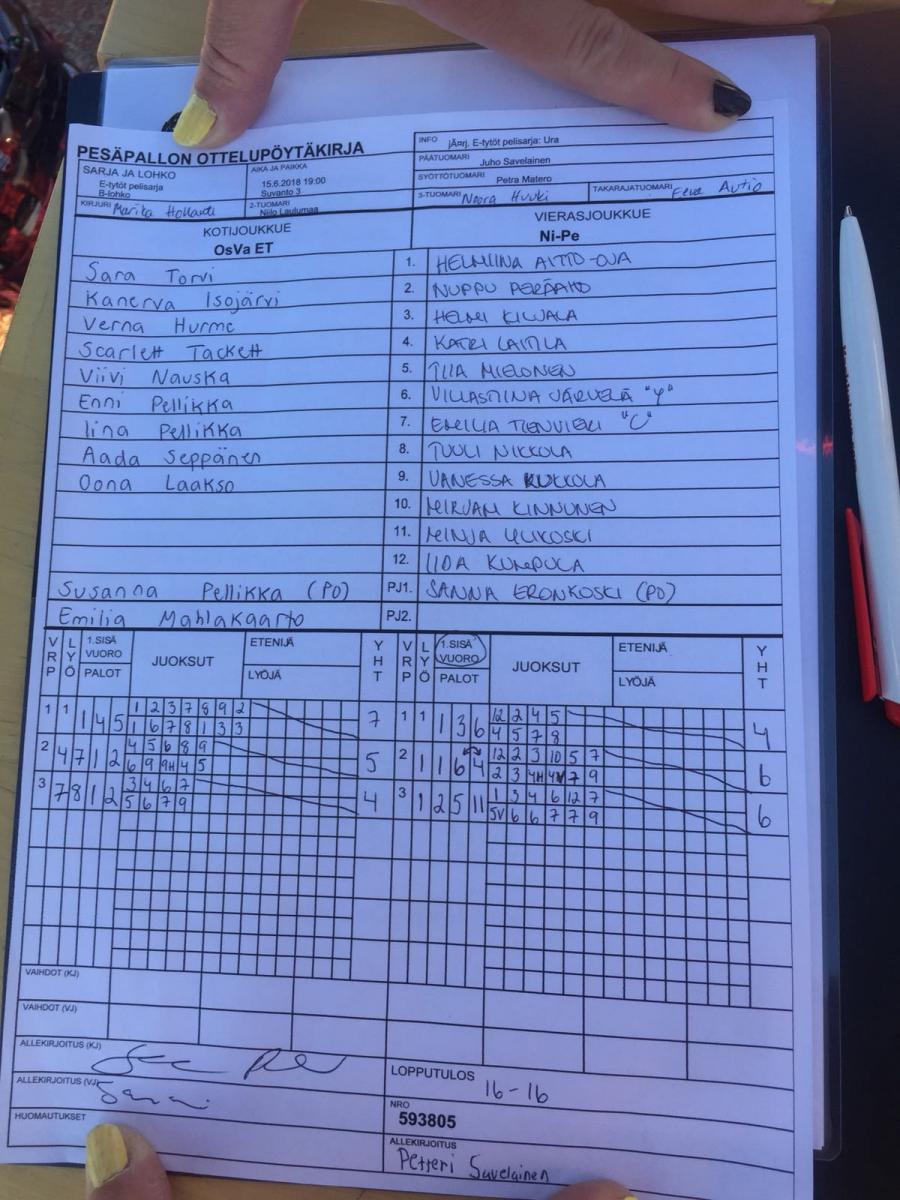 PESÄPALLON OTTELUPÖYTÄKIRJA
INFO jÄ¤rj. E-tytöt pelisarja: Ura
PÄÄTUOMARI Juho Savelainen
SYÖTTÖTUOMARI Petra Matero
SARJA JA LOHKO
E-tytöt pelisarja
B-lohko
AIKA JA PAIKKA
15.6.2018 19:00
Suvanto 3
KIRJURI Marika
2-TUOMARI
Niilo Laulumaa
3-TUOMARI Noora Huuki
TAKARAJATUOMARI Eeva Autio
KOTIJOUKKUE
OsVa ET
VIERASJOUKKUE
Ni-Pe
Sara Torvi 1. HELMIINA AITTO-OJA
Kanerva Isojärvi 2. NUPPU PERÄAHO
Verna Hurme 3. HELMI
Scarlett Tackett 4. KATRI LAITILA
Viivi Nauska 5. TIIA MIELONEN
Enni Pellikka 6. VILLASTIINA JÄRVELÄ "Y"
Iina Pellikka 7. EMILIA TIENVIERI "C"
Aada Seppänen 8. TUULI NIKKOLA
Oona Laakso 9. VANESSA RUKKOLA
10. MIRJAM KINNUNEN
11. MINJA YLIKOSKI
12. IIDA KUMPULA
Susanna Pellikka (PO) PJ1. SANNA ERONKOSKI (PO)
Emilia Mahlakaarto PJ2.
VRP LYÖ 1.SISÄ VUORO PALOT JUOKSUT ETENIJÄ LYÖJÄ YHT VRP LYÖ 1.SISÄ VUORO PALOT JUOKSUT ETENIJÄ LYÖJÄ YHT
1 1 1 4 5 1 2 3 7 8 9 2 7 1 1 1 3 6 12 2 4 5 4
1 6 7 8 1 3 3 4 5 7 8
2 4 7 1 2 4 5 6 8 9 5 2 1 1 6 4 12 2 3 10 5 7 6
6 9 9H 4 5 2 3 4H 4V 7 9
3 7 8 1 2 3 4 6 7 4 3 1 2 5 11 1 3 4 6 12 7 6
5 6 7 9 5V 6 6 7 7 9
VAIHDOT (KJ)
VAIHDOT (VJ)
ALLEKIRJOITUS (KJ)
ALLEKIRJOITUS (VJ)
HUOMAUTUKSET
LOPPUTULOS 16-16
NRO
593805
ALLEKIRJOITUS
Petteri Savelainen